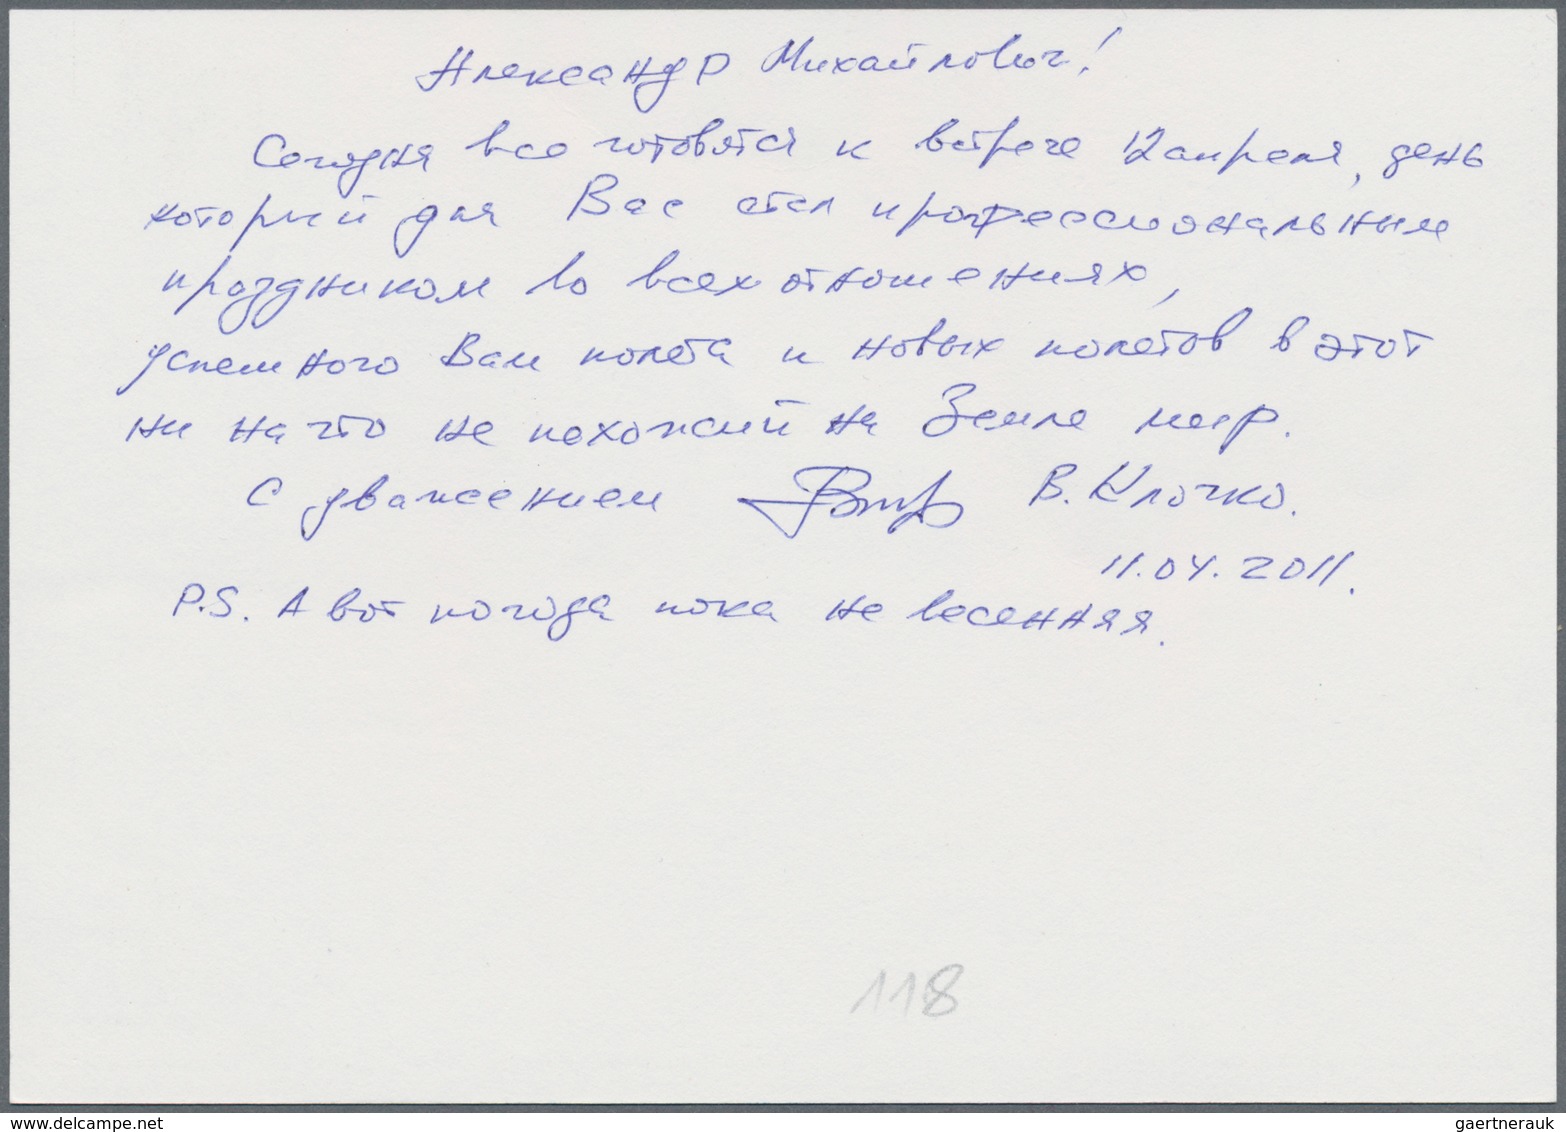 Александр Михайлович!
Сегодня все готовятся к встрече 12 апреля, день
который для Вас стал профессиональным
праздником во всех отношениях,
успешного Вам полета и новых полетов в этот
ни на что не похожий на Земле мир.
С уважением В. Клочко.
11.04.2011.
P.S. А вот погода пока не весенняя.
118
www.delcampe.net
gaertnerauk